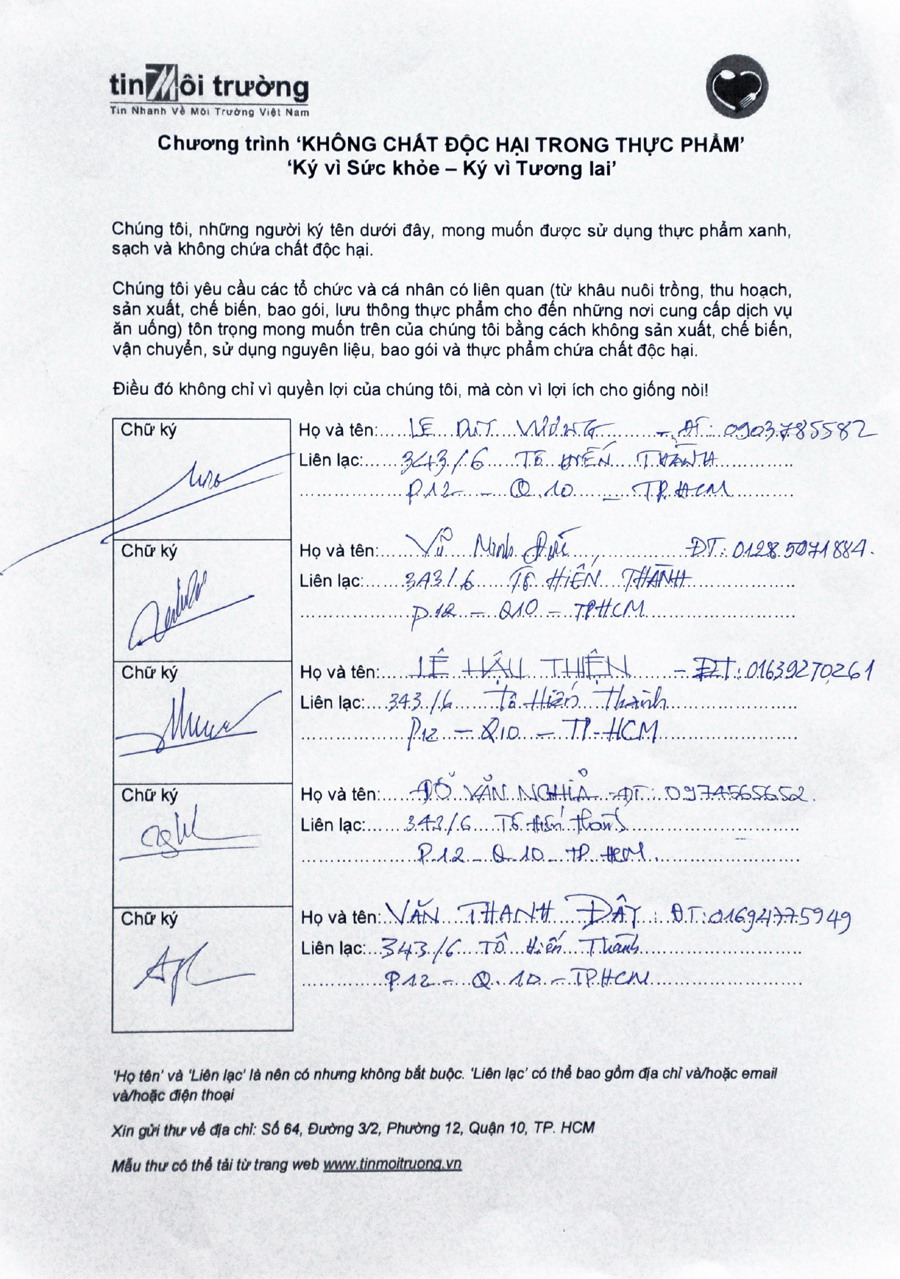 tinMôi trường
Tin Nhanh Về Môi Trường Việt Nam
Chương trình ‘KHÔNG CHẤT ĐỘC HẠI TRONG THỰC PHẨM’
‘Ký vì Sức khỏe – Ký vì Tương lai’
Chúng tôi, những người ký tên dưới đây, mong muốn được sử dụng thực phẩm xanh,
sạch và không chứa chất độc hại.
Chúng tôi yêu cầu các tổ chức và cá nhân có liên quan (từ khâu nuôi trồng, thu hoạch,
sản xuất, chế biến, bao gói, lưu thông thực phẩm cho đến những nơi cung cấp dịch vụ
ăn uống) tôn trọng mong muốn trên của chúng tôi bằng cách không sản xuất, chế biến,
vận chuyển, sử dụng nguyên liệu, bao gói và thực phẩm chứa chất độc hại.
Điều đó không chỉ vì quyền lợi của chúng tôi, mà còn vì lợi ích cho giống nòi!
Chữ ký
Họ và tên: LÊ DUY VƯƠNG - ĐT: 0903.785582
Liên lạc: 343/6 TÔ HIẾN THÀNH
P12 - Q.10 - TP.HCM
Chữ ký
Họ và tên: Vũ Minh Đức ĐT: 0128.5971884.
Liên lạc: 343/6 TÔ HIẾN THÀNH
P.12 - Q10 - TPHCM
Chữ ký
Họ và tên: LÊ HẬU THIỆN - ĐT: 01639270261
Liên lạc: 343/6 Tô Hiến Thành
P12 - Q10 - TP-HCM
Chữ ký
Họ và tên: ĐỖ VĂN NGHĨA ĐT: 0974565652.
Liên lạc: 343/6 Tô Hiến Thành
P.12 - Q.10 - TP. HCM.
Chữ ký
Họ và tên: VĂN THANH ĐÂY: ĐT: 01694775949
Liên lạc: 343/6 Tô Hiến Thành
P12 - Q.10 - TP.HCM
'Họ tên' và 'Liên lạc' là nên có nhưng không bắt buộc. 'Liên lạc' có thể bao gồm địa chỉ và/hoặc email
và/hoặc điện thoại
Xin gửi thư về địa chỉ: Số 64, Đường 3/2, Phường 12, Quận 10, TP. HCM
Mẫu thư có thể tải từ trang web www.tinmoitruong.vn